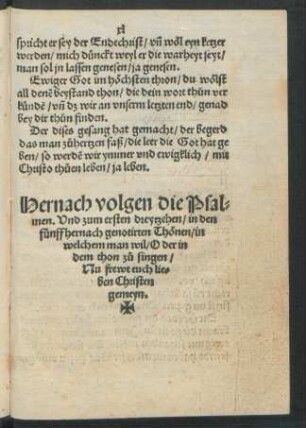 xl
spricht er sey der Endechrist / uñ wöl eyn ketzer
werden / mich dünckt weyl er die warheyt seyt /
man sol in lassen genesen / ja genesen.
Ewiger Got im höchsten thron / du wölst
all denē beystand thon / die dein wort thün ver
kündē / uñ dz wir an unserm letzten end / genad
bey dir thün finden.
Der dises gesang hat gemacht / der begerd
das man zů hertzen faß / die leer die Got hat ge
ben / so werdē wir ymmer und ewigklich / mit
Christo thüen leben / ja leben.
Hernach volgen die Psal-
men. Und zum ersten dreytzehen / in den
fünff hernach genotirten Thönen / in
welchem man wil / Oder in
dem thon zů singen /
Nu frewt euch lie-
ben Christen
gemeyn.
✠